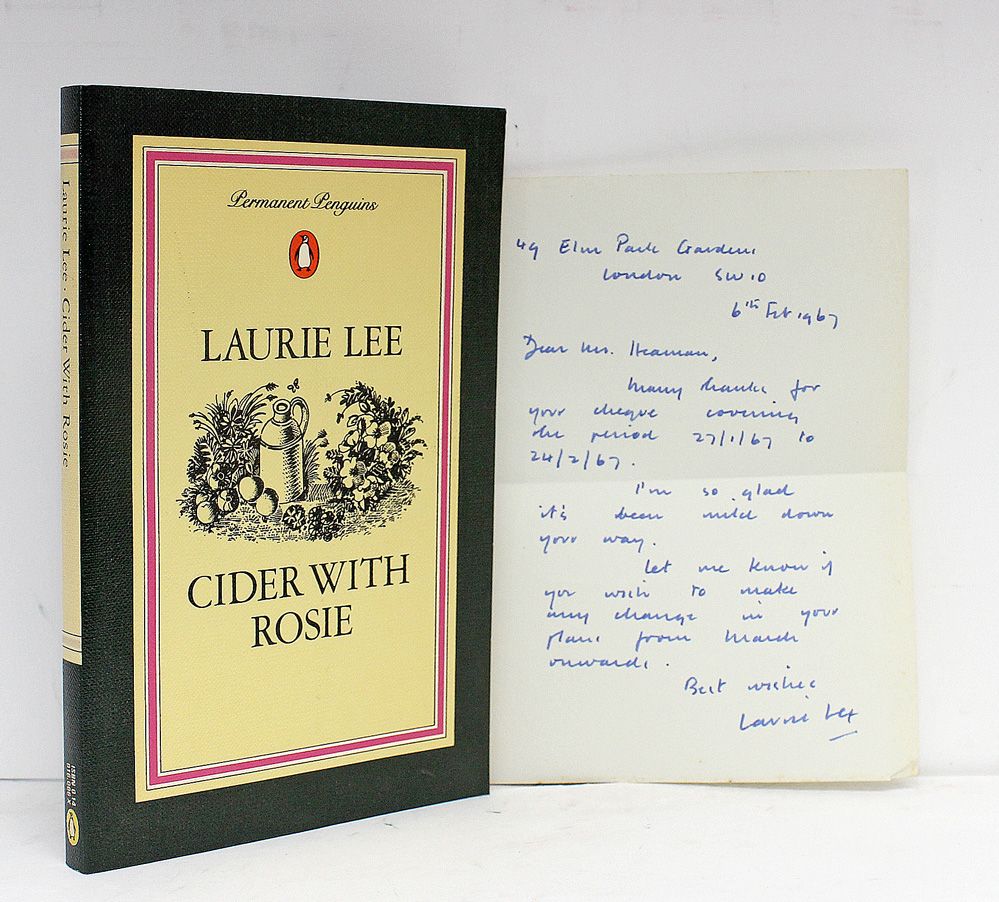 Laurie Lee Cider With Rosie
ISBN 0 14
Permanent Penguins
LAURIE LEE
CIDER WITH
ROSIE
49 Elm Park Gardens
London SW10
6th Feb 1967
Dear Mrs. Heaman,
Many thanks for
your cheque covering
the period 27/1/67 to
24/2/67.
I'm so glad
it's been mild down
your way.
Let me know if
you wish to make
any change in your
plans from March
onwards.
Best wishes
Laurie Lee